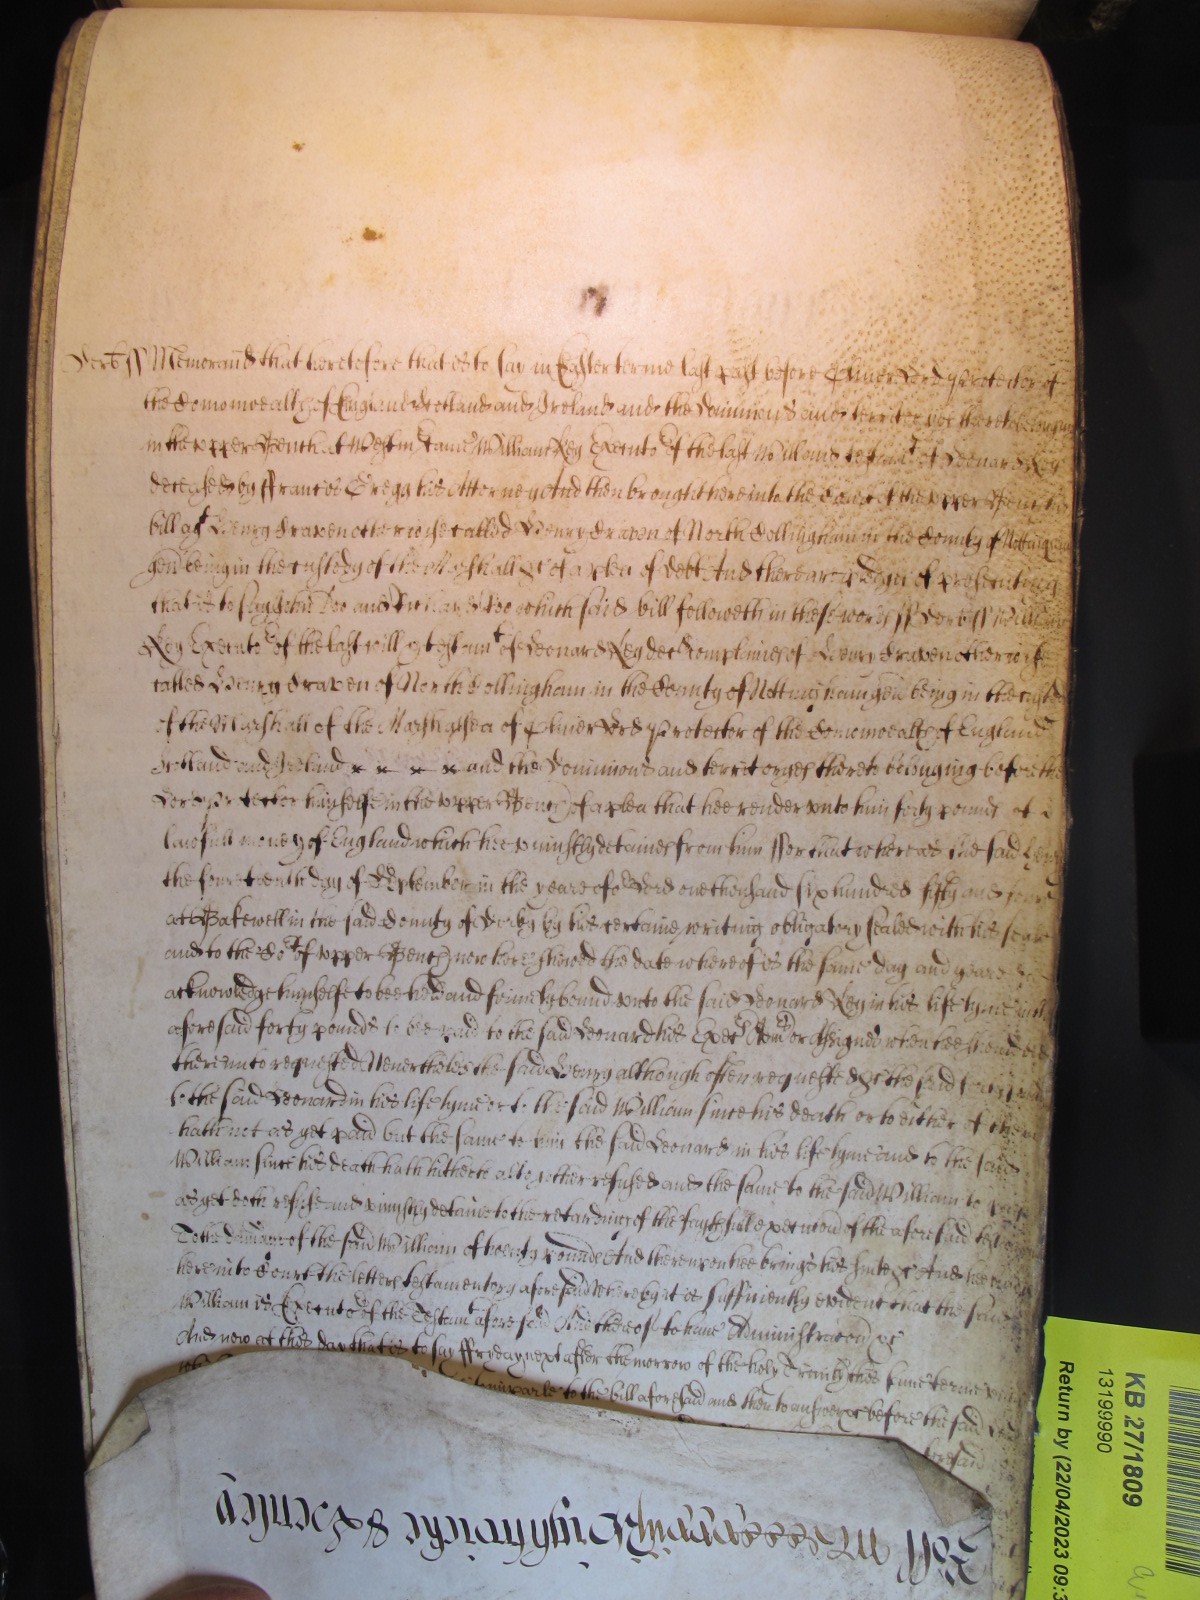 Derb ss Memorand that heretofore that is to say in Easter terme last past before Oliver Lord Protector of
the Comonwealth of England Scotland and Ireland and the Dominions and territoryes thereto belonging
in the upper Bench at Westm came William Key Executor of the last Will and testamt of Leonard Key
deceased by Francis Gregg his Attorney And then brought here into the Court of the upper Bench his
bill agt Henry Draxen otherwise called Henry Draxen of North Collingham in the County of Nottingham
gen being in the custody of the Marshall &c of a plea of debt And there are pledges of prosecuting
that is to say John Doo and Richard Roo which said bill followeth in these words ss Derb ss William
Key Executor of the last will & testamt of Leonard Key deced complaines of Henry Draxen otherwise
called Henry Draxen of North Collingham in the County of Nottingham gen being in the custody
of the Marshall of the Marshalsea of Oliver Lord Protector of the Comonwealth of England
Scotland and Ireland and the Dominions and territoryes thereto belonging before the
Lord Protector himselfe in the upper Bench of a plea that hee render unto him forty pounds of
lawfull money of England which hee uniustly detaines from him For that whereas the said Henry
the fourteenth day of September in the yeare of or Lord one thousand six hundred fifty and
at Bakewell in the said County of Derby by his certaine writing obligatory sealed with his seale
and to the Cort of upper Bench now here shewed the date whereof is the same day and yeare did
acknowledge himselfe to bee held and firmely bound unto the said Leonard Key in his life tyme in the
aforesaid forty pounds to bee paid to the said Leonard his Execrs Admrs or Assignes when hee should bee
thereunto requested Neverthelesse the said Henry although often requested &c the said forty pounds
to the said Leonard in his life tyme or to the said William since his death or to either of them
hath not as yet paid but the same to him the said Leonard in his life tyme and to the said
William since his death hath hitherto altogether refused and the same to the said William to pay
as yet doth refuse and uniustly detaine to the retarding of the execucion of the aforesaid
To the damage of the said William of twenty pounds And thereupon hee brings his suite &c And hee brings
here into Court the letters testamentory aforesaid whereby it is sufficiently evident that the said
William is Executor of the Testamt aforesaid And thereof to have Administracon &c
And now at this day that is to say Fryday next after the morrow of the holy Trinity this same terme untill
imparle to the bill aforesaid and then to answere &c before the said Lord
aforesaid
KB 27/1809
13199990
Return by (22/04/2023 09:3